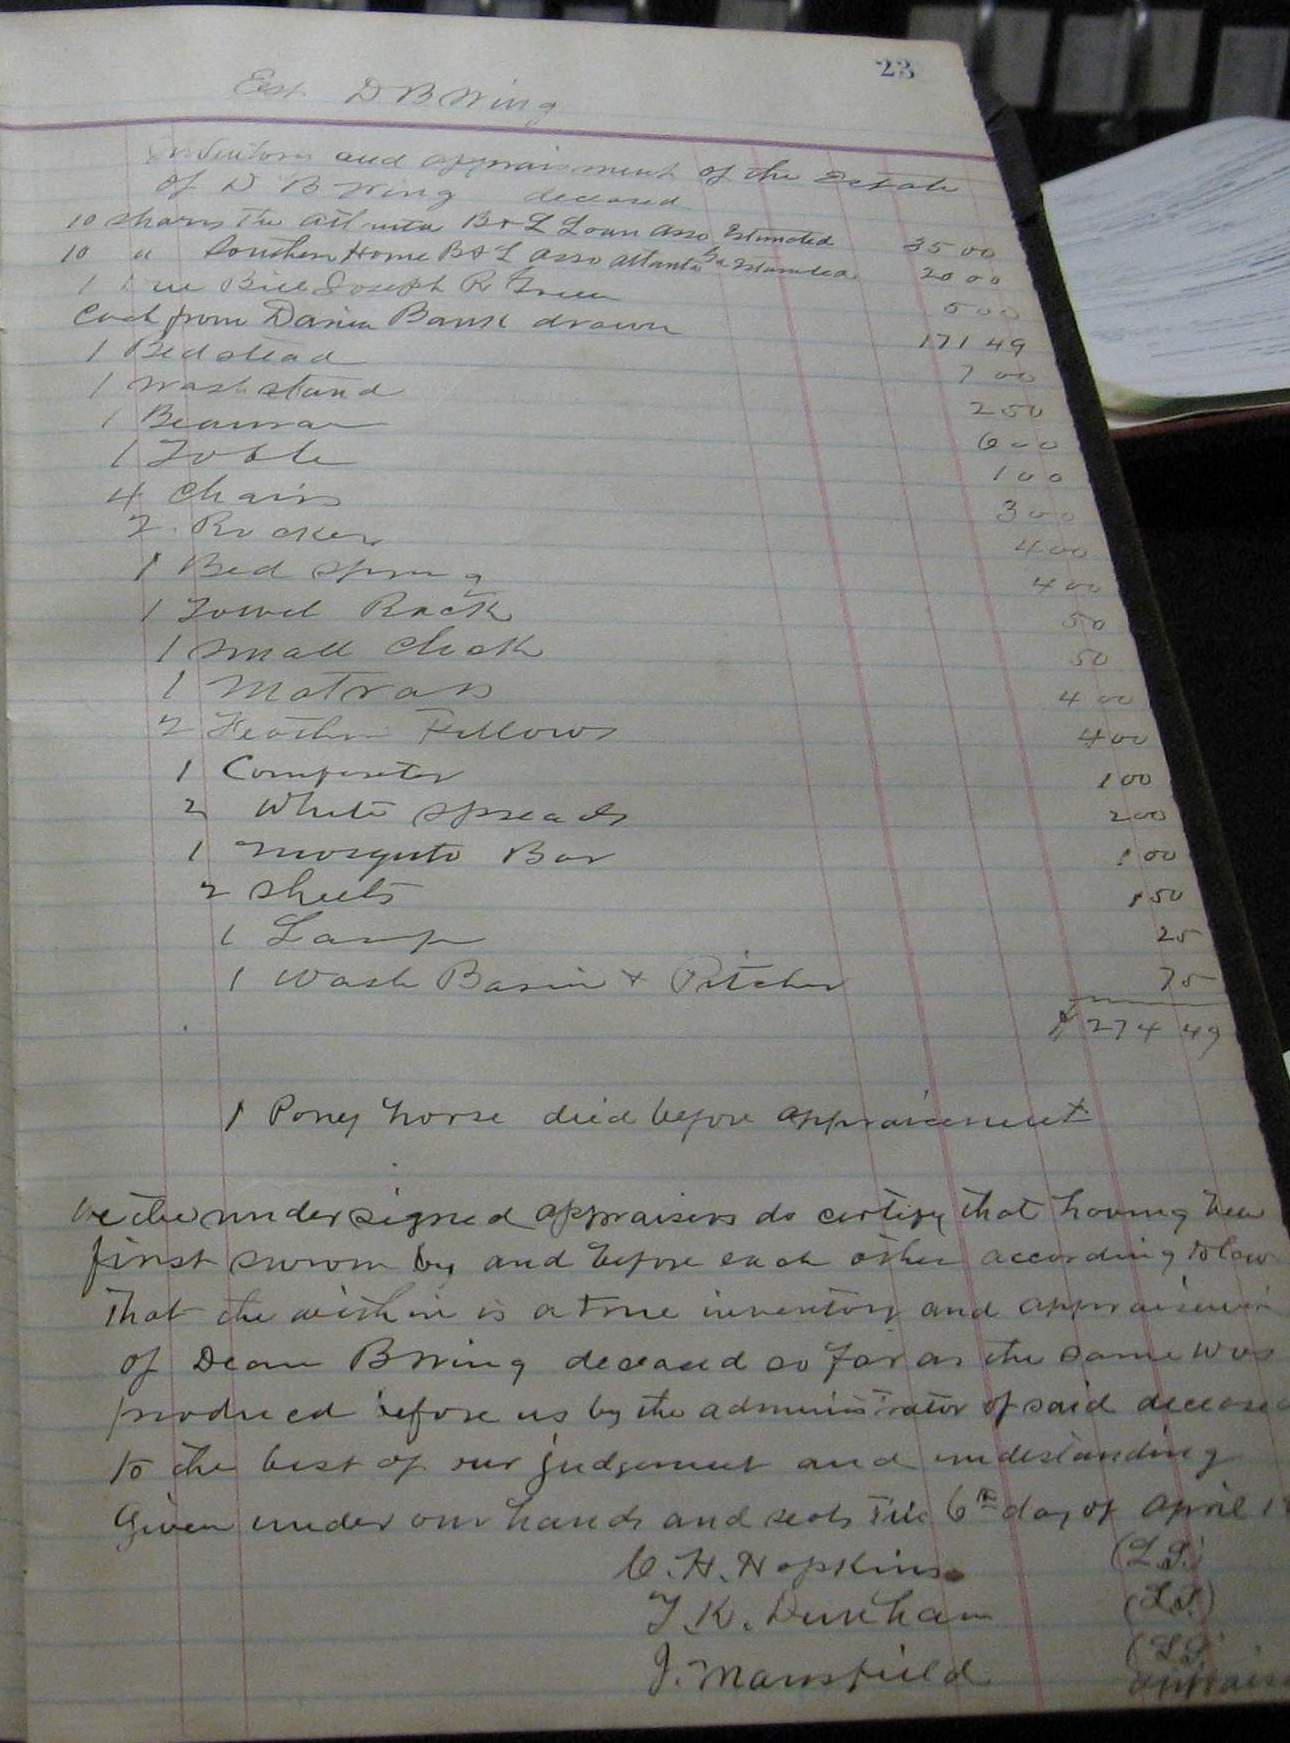 23
Est D B Wing
Inventory and appraisment of the Estate
of D B Wing deceased
10 shares The Atlanta B & L Loan Asso Estimated 35 00
10 " Southern Home B & L Asso Atlanta Ga Estimated 20 00
1 Due Bill Joseph R Green 5 00
Cash from Darien Bank drawn 171 49
1 Bedstead 7 00
1 Wash stand 2 50
1 Beaurau 6 00
1 Table 1 00
4 Chairs 3 00
2 Rocker 4 00
1 Bed Spring 4 00
1 Towel Rack 50
1 Small Clock 50
1 Matrass 4 00
2 Feather Pillows 4 00
1 Comforter 1 00
2 White Spreads 2 00
1 Mosquito Bar 1 00
2 Sheets 1 50
1 Lamp 25
1 Wash Basin & Pitcher 75
$ 274 49
1 Poney horse died before appraisement
We the undersigned appraisers do certify that having been
first sworn by and before each other according to law
That the within is a true inventory and appraisemen
of Dean B Wing deceased so far as the same was
produced before us by the administrator of said deceased
to the best of our judgement and undestanding
Given under our hands and seals This 6th day of April 1
C. H. Hopkins (L.S.)
T. K. Dunham (L.S.)
J. Mansfield (L.S.